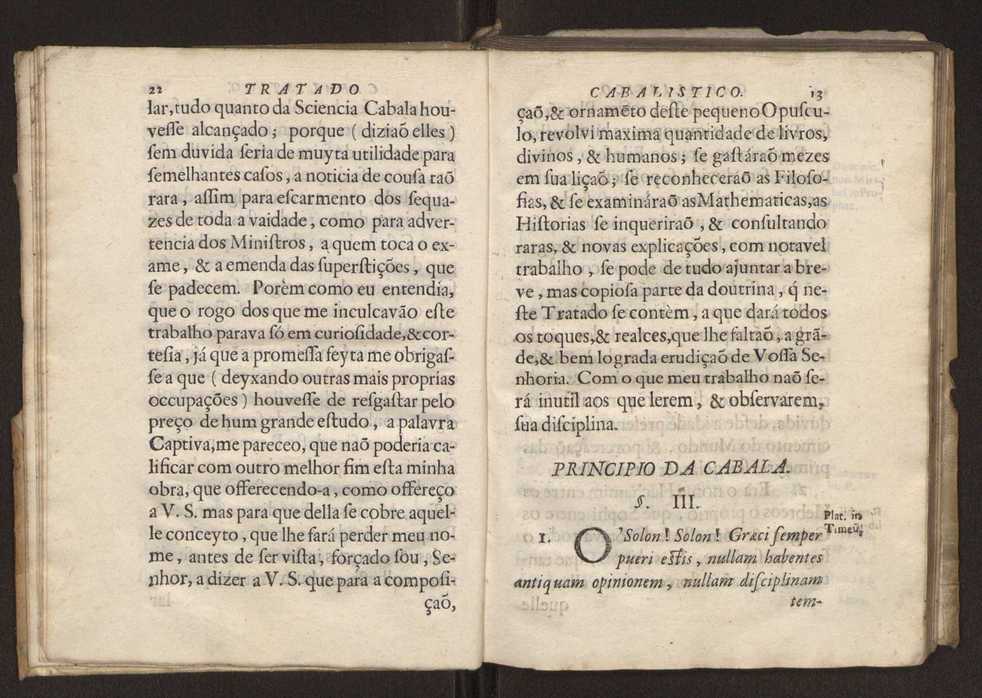 22 TRATADO
lar, tudo quanto da Sciencia Cabala hou-
veſſe alcançado; porque ( diziaõ elles )
ſem duvida ſeria de muyta utilidade para
ſemelhantes caſos, a noticia de couſa taõ
rara, aſſim para eſcarmento dos ſequa-
zes de toda a vaidade, como para adver-
tencia dos Miniſtros, a quem toca o ex-
ame, & a emenda das ſuperſtições, que
ſe padecem. Porèm como eu entendia,
que o rogo dos que me inculcavão eſte
trabalho parava ſó em curioſidade,&cor-
teſia, já que a promeſſa feyta me obrigaſ-
ſe a que ( deyxando outras mais proprias
occupações ) houveſſe de resgaſtar pelo
preço de hum grande eſtudo, a palavra
Captiva,me pareceo, que naõ poderia ca-
lificar com outro melhor fim eſta minha
obra, que offerecendo-a, como offereço
a V. S. mas para que della ſe cobre aquel-
le conceyto, que lhe fará perder meu no-
me, antes de ſer viſta, forçado ſou, Se-
nhor, a dizer a V. S. que para a compoſi-
çaõ,
CABALISTICO. 13
çaõ,& ornamẽto deſte pequeno Opuſcu-
lo, revolvi maxima quantidade de livros,
divinos, & humanos; ſe gaſtáraõ mezes
em ſua liçaõ; ſe reconheceraõ as Filoſo-
fias, & ſe examináraõ as Mathematicas,as
Hiſtorias ſe inqueriraõ, & conſultando
raras, & novas explicações, com notavel
trabalho, ſe pode de tudo ajuntar a bre-
ve, mas copioſa parte da doutrina, q́ ne-
ſte Tratado ſe contèm, a que dará todos
os toques,& realces,que lhe faltaõ, a grã-
de,& bem lograda erudiçaõ de Voſſa Se-
nhoria. Com o que meu trabalho naõ ſe-
rá inutil aos que lerem, & obſervarem,
ſua diſciplina.
PRINCIPIO DA CABALA.
§. III.
Plat. in
Timeũ.
1. O'Solon! Solon! Græci ſemper
pueri eſtis, nullam habentes
antiquam opinionem, nullam diſciplinam
tem-